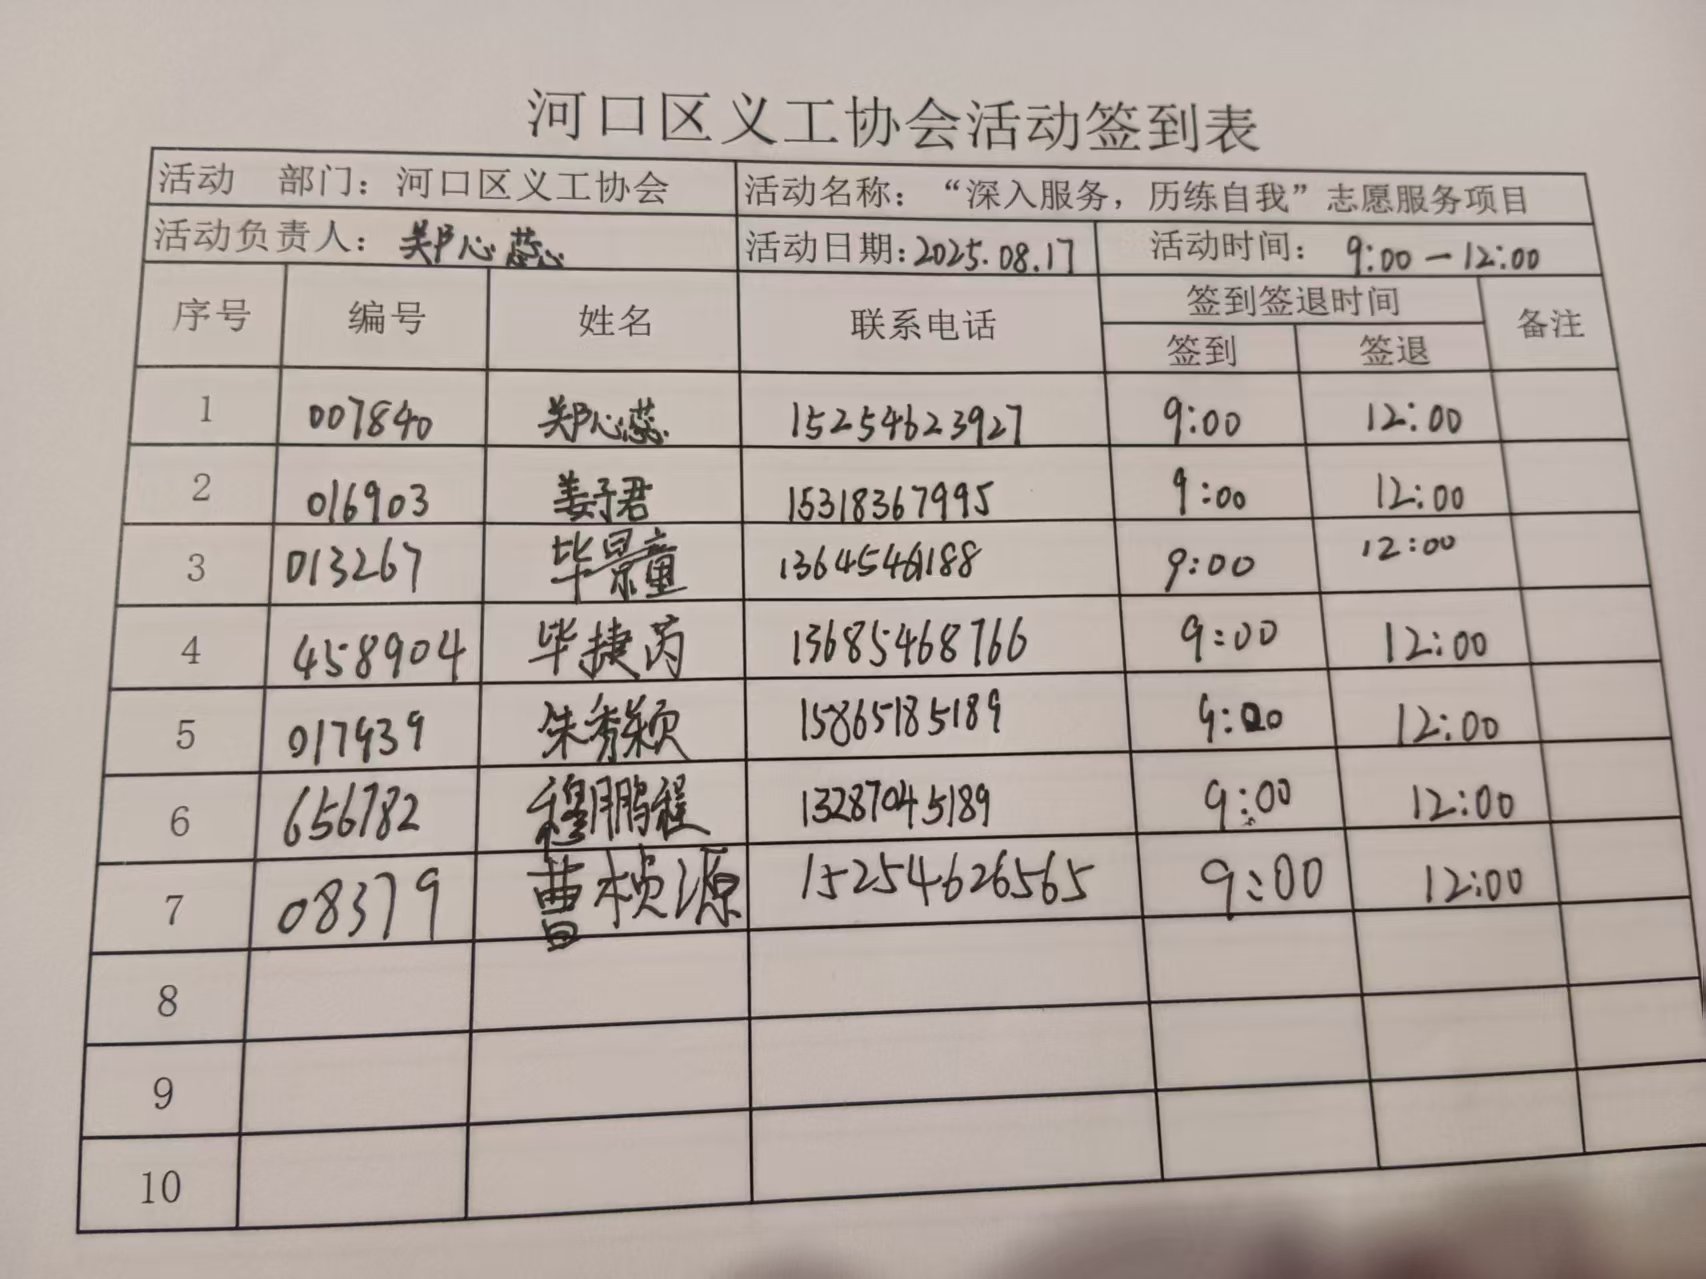 河口区义工协会活动签到表
活动 部门：河口区义工协会 活动名称：“深入服务，历练自我”志愿服务项目
活动负责人：郑心蕊 活动日期：2025.08.17 活动时间：9:00－12:00
序号 编号 姓名 联系电话 签到签退时间 备注
签到 签退
1 007840 郑心蕊 15254623927 9:00 12:00
2 016903 姜子君 15318367995 9:00 12:00
3 013267 毕景童 13645461188 9:00 12:00
4 458904 毕捷芮 13685468766 9:00 12:00
5 017939 朱秀颖 15865185189 9:00 12:00
6 656782 穆鹏程 13287045189 9:00 12:00
7 08379 曹桢源 15254626565 9:00 12:00
8
9
10